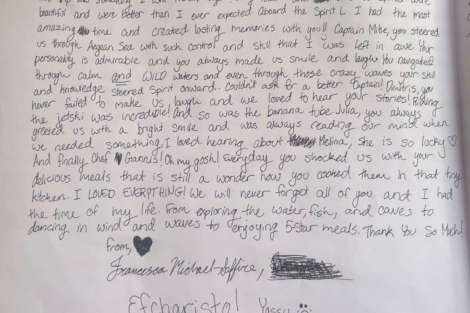 beautiful and were better than I ever expected aboard the Spirit L. I had the most
amazing time and created lasting memories with you!! Captain Mike, you steered
us through Aegean Sea with such control and skill that I was left in awe. Your
personality is admirable and you always made us smile and laugh! You navigated
through calm and WILD waters and even through those crazy waves your skill
and knowledge steered Spirit onward. Couldn't ask for a better Captain! Dimitris, you
never failed to make us laugh and we loved to hear your stories! Riding
the jetski was incredible! and so was the banana tube. Julia, you always
greeted us with a bright smile and was always reading our mind when
we needed something. I loved hearing about Melina, she is so lucky ♡
And finally, Chef Giannis! Oh my gosh! Everyday you shocked us with your
delicious meals that is still a wonder how you cooked them in that tiny
kitchen. I LOVED EVERYTHING! We will never forget all of you and I had
the time of my life from exploring the water, fish, and caves to
dancing in wind and waves to enjoying 5-star meals. Thank You So Much!
From, ♥
Francesca Michael
Efcharisto! Yassu